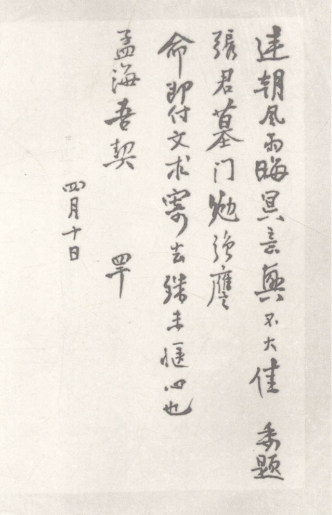 连朝风雨晦冥意興不大佳 委题
張君墓门勉强應
命即付文求寄去殊未惬心也
孟海吾契
四月十日